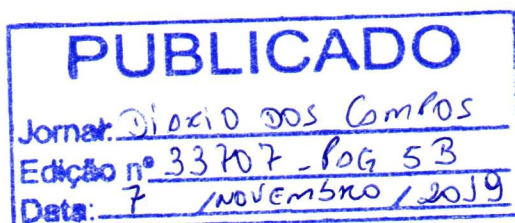 PUBLICADO
Jornal: Diario dos Campos
Edição nº 33707 - PAG 5B
Data: 7 / NOVEMBRO / 2019